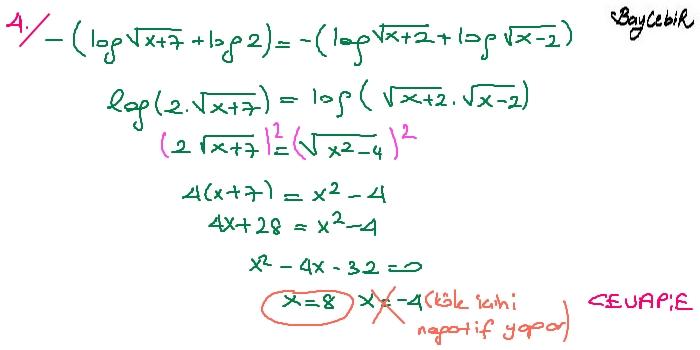 BAYCEBİR
4./ -(log√x+7 + log2) = -(log√x+2 + log√x-2)
log(2.√x+7) = log(√x+2 . √x-2)
(2√x+7)² = (√x²-4)²
4(x+7) = x² - 4
4x+28 = x²-4
x² - 4x - 32 = 0
x=8 x=-4 (kök içini
negatif yapar)
CEVAP:E